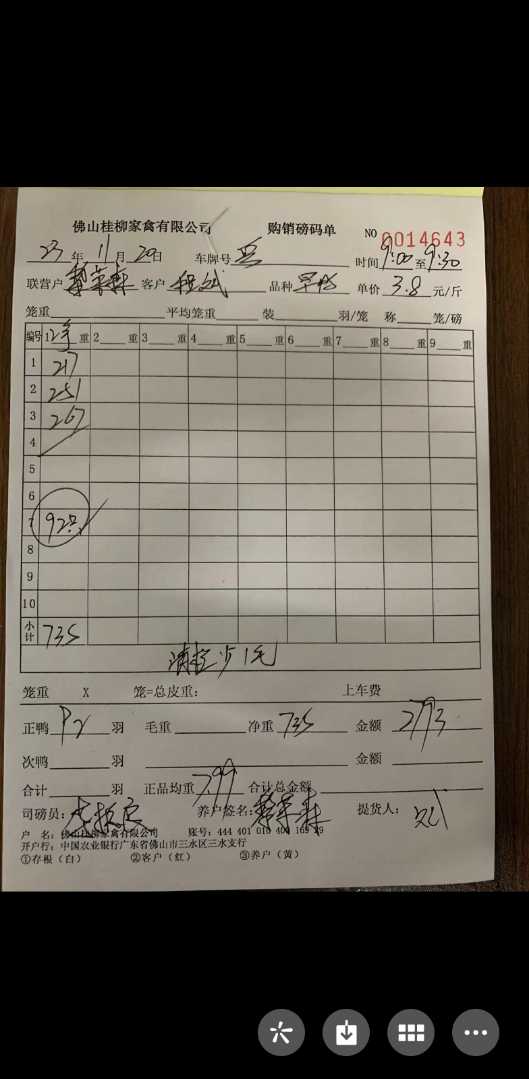 佛山桂柳家禽有限公司 购销磅码单 NO 0014643
23年11月20日 车牌号 时间9:00至9:30
联营户 客户 品种 单价3.8元/斤
笼重 平均笼重 装 羽/笼 称 笼/磅
编号 1 重 2 重 3 重 4 重 5 重 6 重 7 重 8 重 9 重
1 217
2 251
3 267
4
5
6
7
8
9
10
小计 735
少1毛
笼重 X 笼=总皮重: 上车费
正鸭 羽 毛重 净重735 金额2793
次鸭 羽 金额
合计 羽 正品均重7.99 合计总金额
司磅员: 养户签名: 提货人:
户 名: 佛山桂柳家禽有限公司 账号: 444 401 010 400 165 29
开户行: 中国农业银行广东省佛山市三水区三水支行
①存根(白) ②客户(红) ③养户(黄)